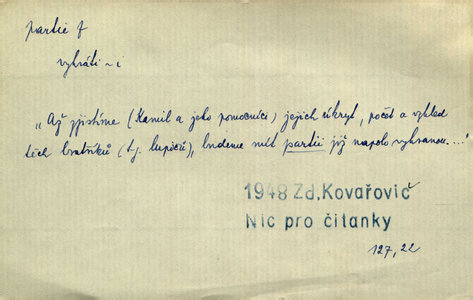 partie f
vyhráti ~ i
„Až zjistíme (Kamil a jeho pomocníci) jejich úkryt, počet a vzhled
těch bratříků (tj. lupičů), budeme mít partii již napolo vyhranou...“
1948 Zd. Kovařovič
Nic pro čítanky
127, 22